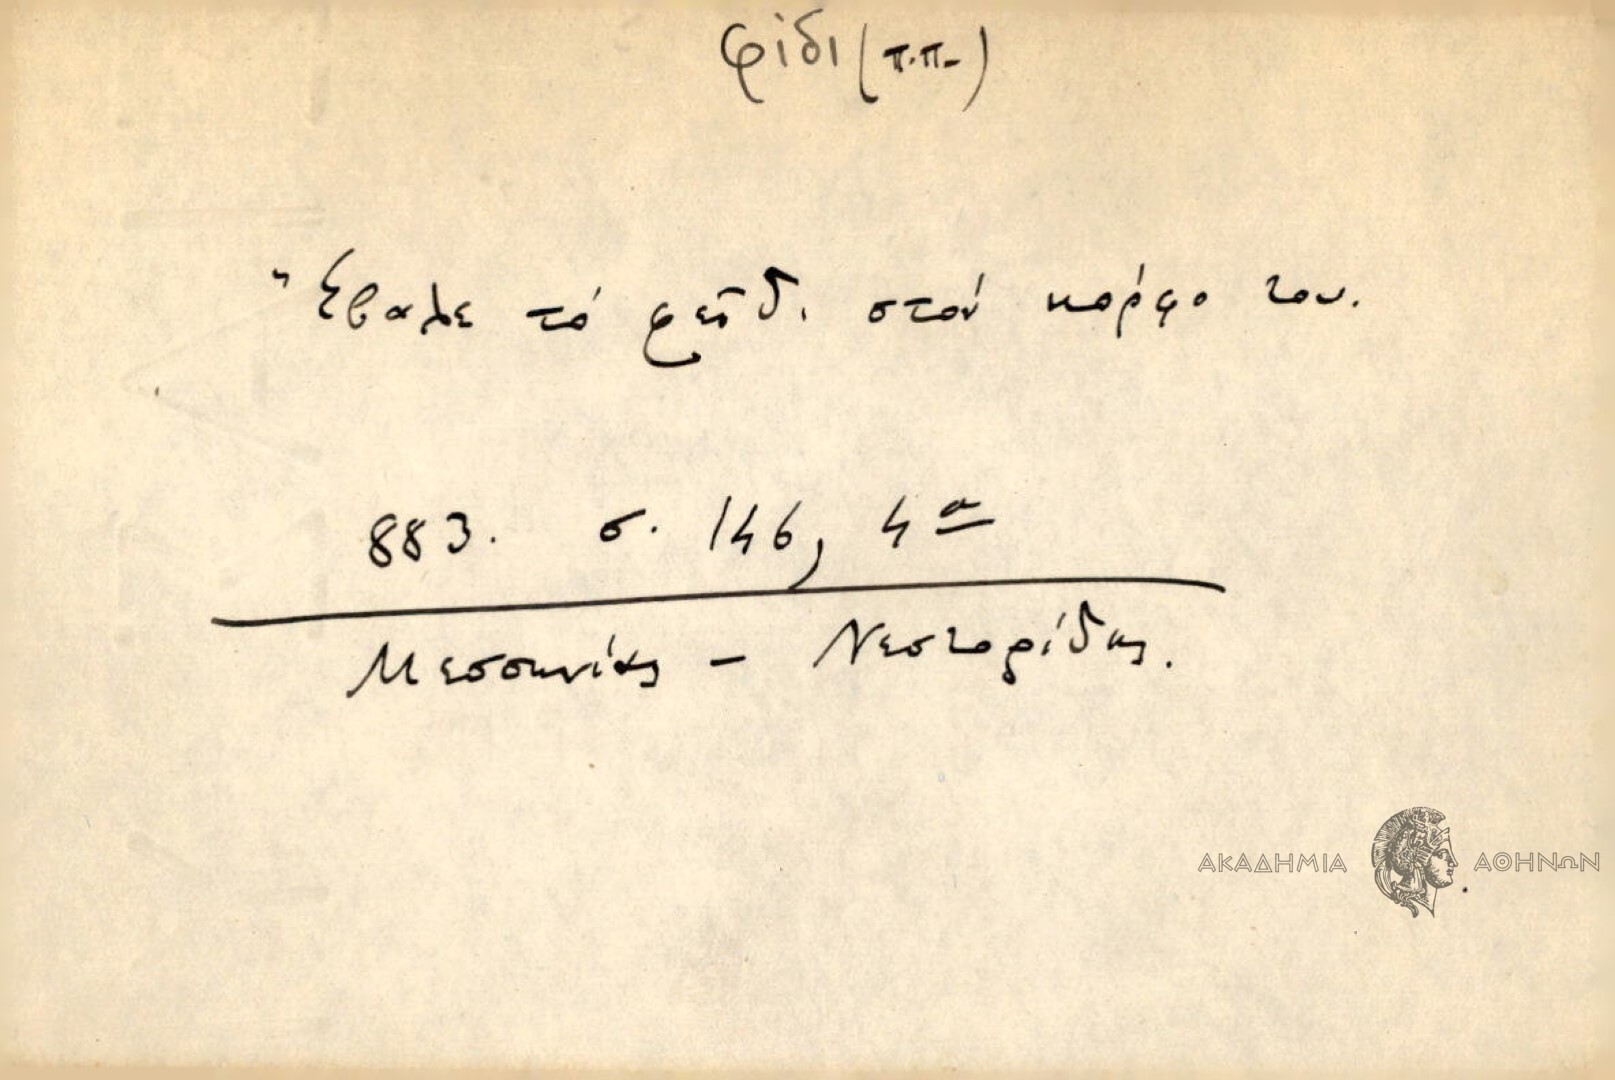 φίδι (π.π.)
Ἔβαλε τό φεῖδι στόν κόρφο του.
883. σ. 146, 4α
Μεσσηνίας - Νεστορίδης.
ΑΚΑΔΗΜΙΑ ΑΘΗΝΩΝ